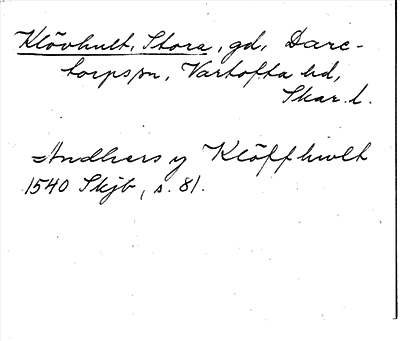 Klövhult, Stora, gd, Dare-
torps sn, Vartofta hd,
Skar. l.
Andhers y Klöffhwlt
1540 Skjb, s. 81.